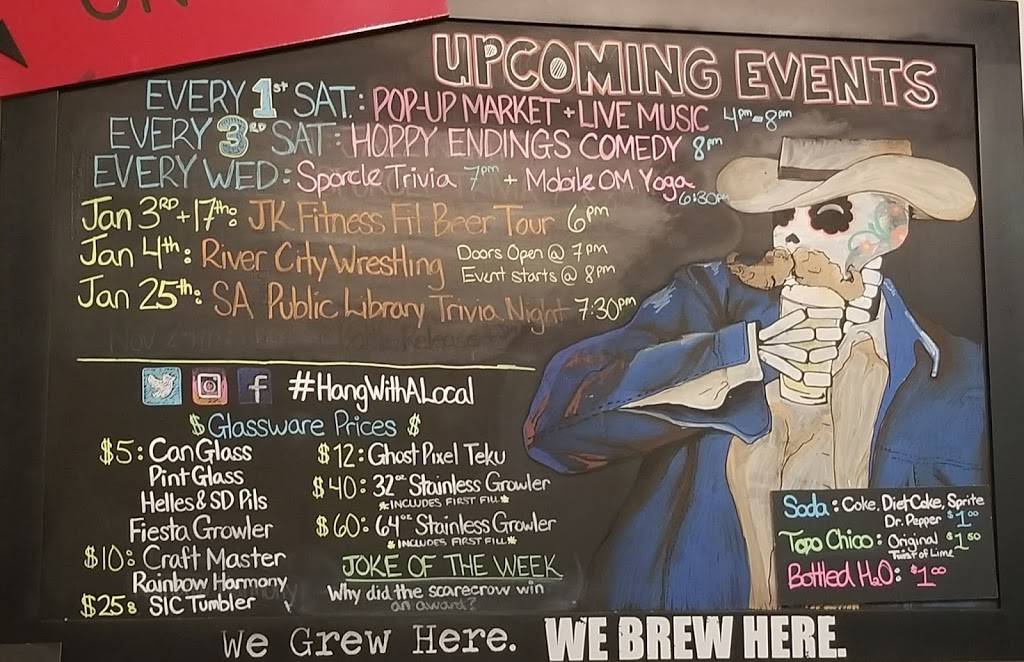 UPCOMING EVENTS
EVERY 1st SAT.: POP-UP MARKET + LIVE MUSIC 4pm-8pm
EVERY 3RD SAT: HOPPY ENDINGS COMEDY 8pm
EVERY WED: Sporcle Trivia 7pm + Mobile OM Yoga 6:30pm
Jan 3RD + 17th: JK Fitness Fit Beer Tour 6pm
Jan 4th: River City Wrestling Doors Open @ 7pm
Event starts @ 8pm
Jan 25th: SA Public Library Trivia Night 7:30pm
#HangWithALocal
$ Glassware Prices $
$5: Can Glass
Pint Glass
Helles & SD Pils
Fiesta Growler
$10: Craft Master
Rainbow Harmony
$25: SIC Tumbler
$12: Ghost Pixel Teku
$40: 32oz Stainless Growler
*INCLUDES FIRST FILL*
$60: 64oz Stainless Growler
*INCLUDES FIRST FILL*
JOKE OF THE WEEK
Why did the scarecrow win
an award?
Soda: Coke, Diet Coke, Sprite
Dr. Pepper $1.00
Topo Chico: Original $1.50
Twist of Lime
Bottled H2O: $1.00
We Grew Here. WE BREW HERE.